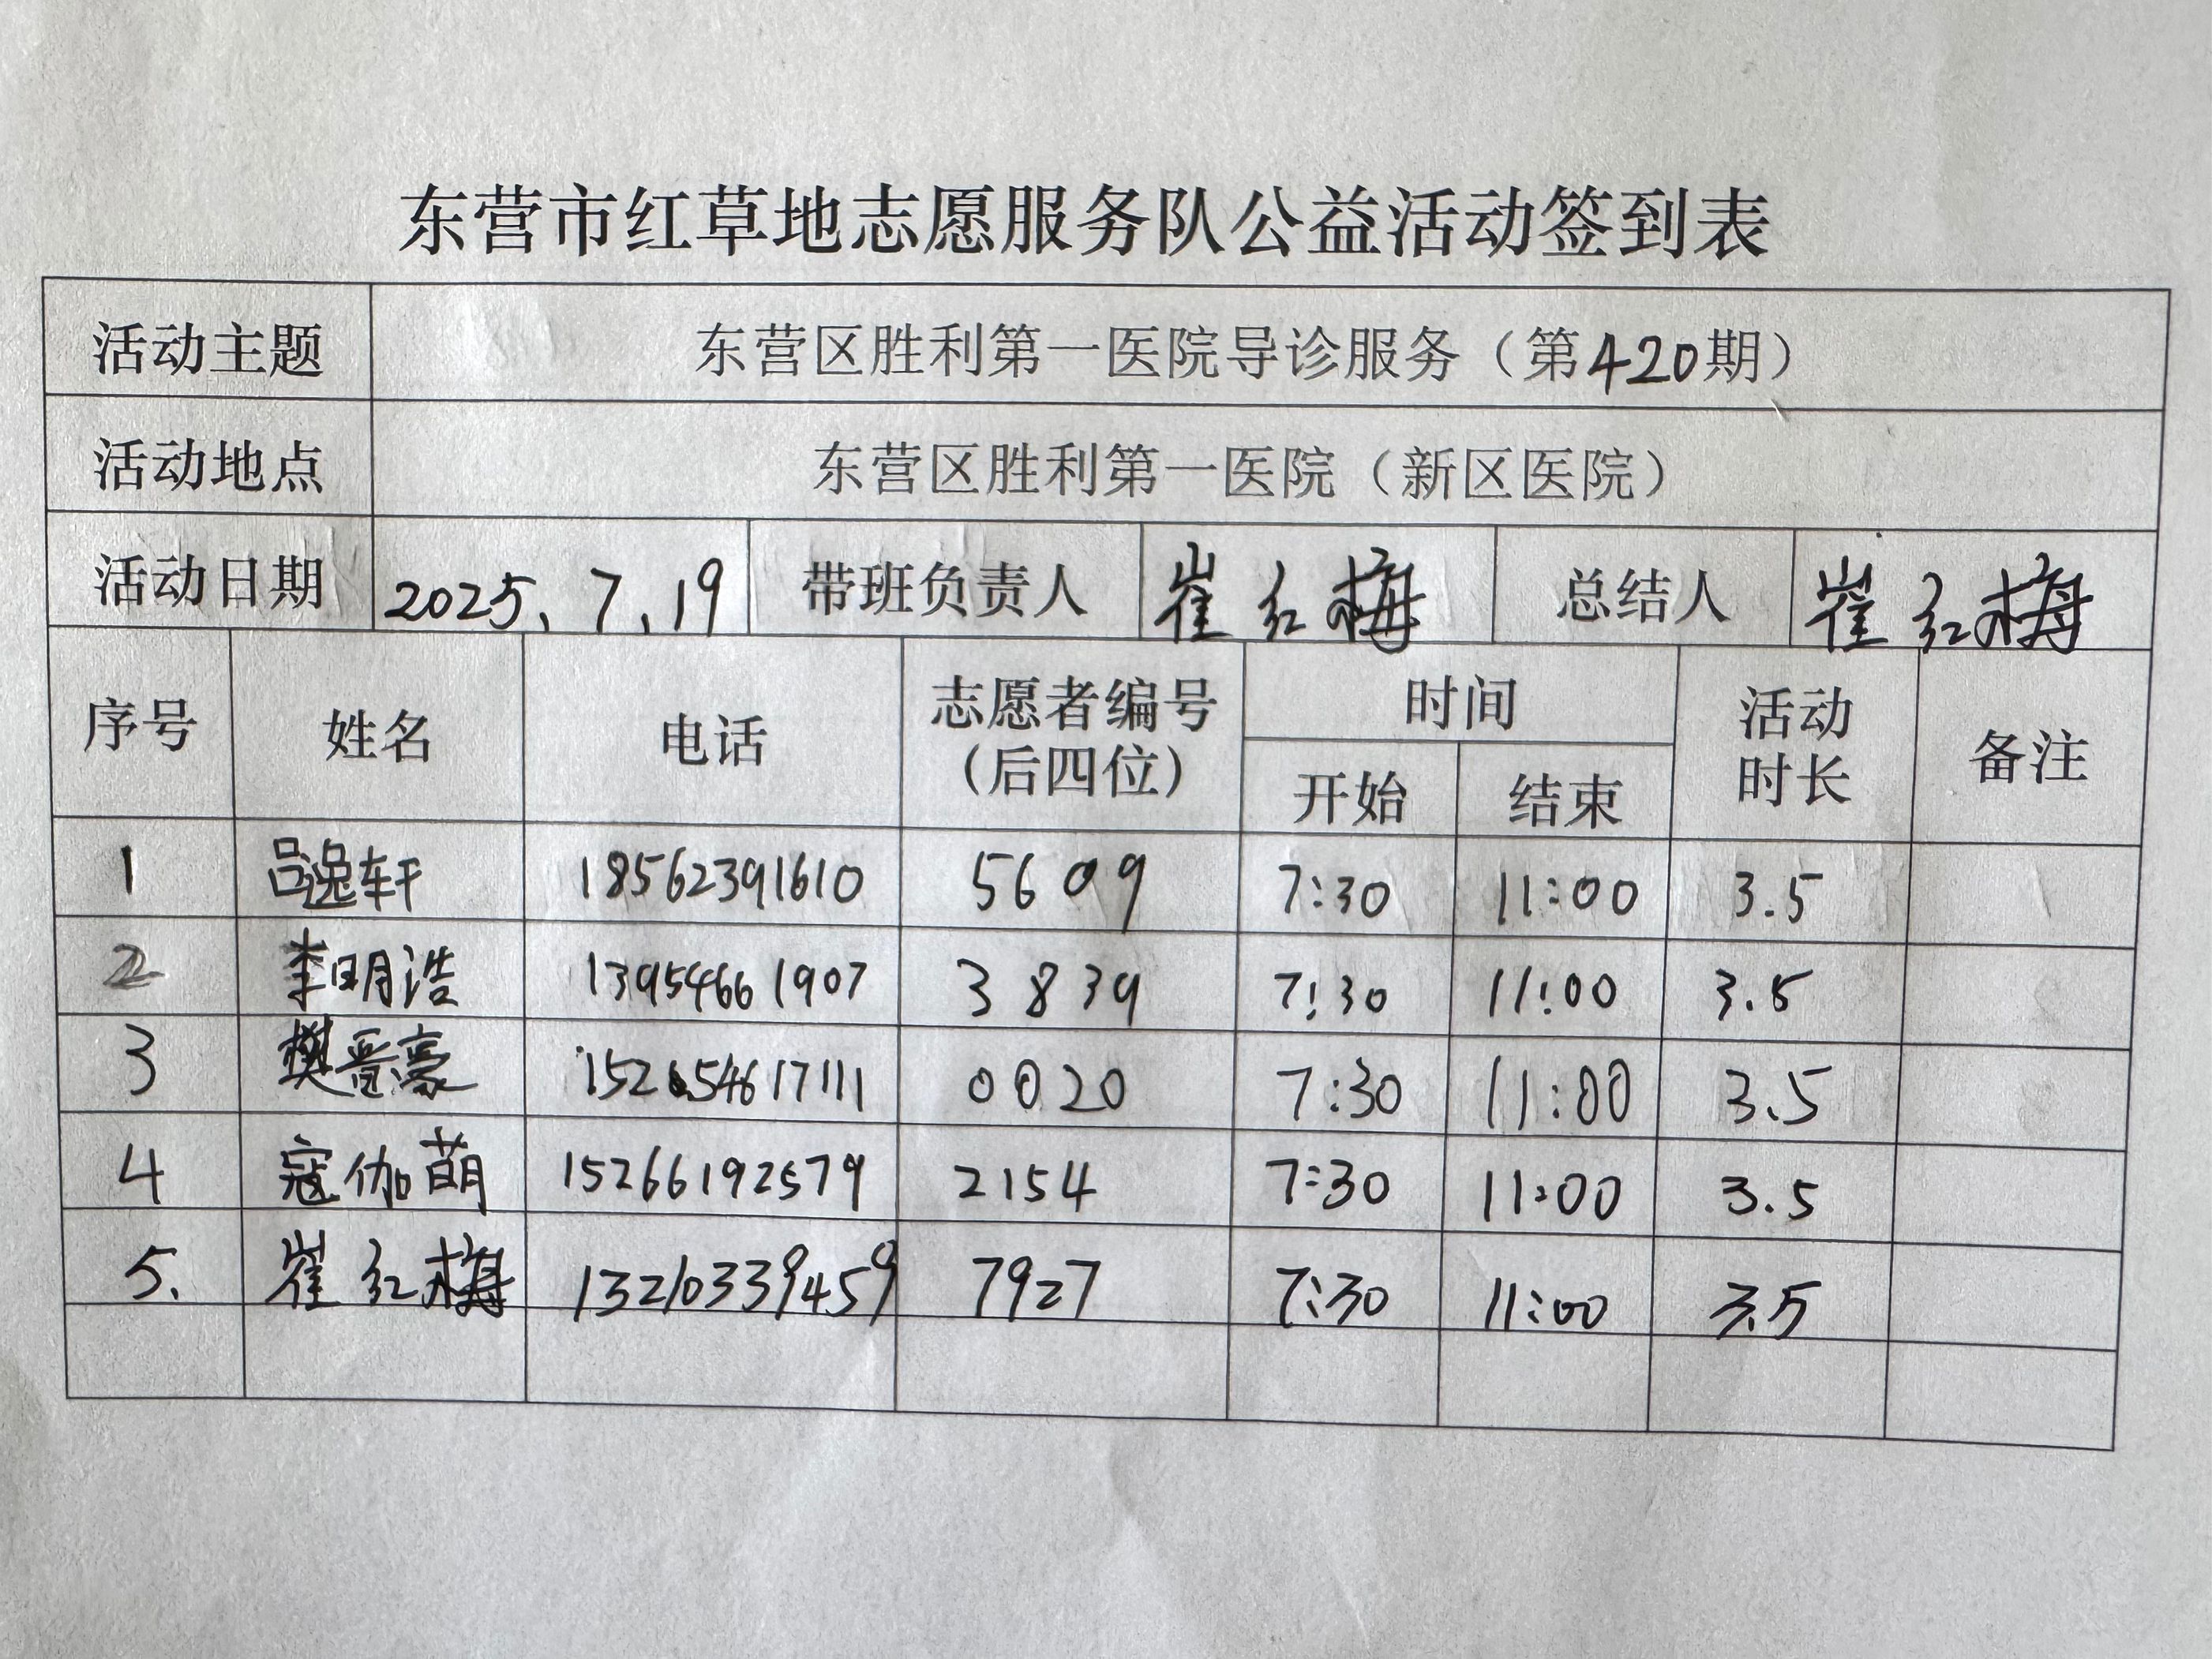 东营市红草地志愿服务队公益活动签到表
活动主题 东营区胜利第一医院导诊服务（第420期）
活动地点 东营区胜利第一医院（新区医院）
活动日期 2025.7.19 带班负责人 崔红梅 总结人 崔红梅
序号 姓名 电话 志愿者编号（后四位） 时间 开始 结束 活动时长 备注
1 吕逸轩 18562391610 5609 7:30 11:00 3.5
2 李明浩 13954661907 3839 7:30 11:00 3.5
3 樊晋豪 15265461711 0020 7:30 11:00 3.5
4 寇伽萌 15266192579 2154 7:30 11:00 3.5
5. 崔红梅 13210339459 7927 7:30 11:00 3.5